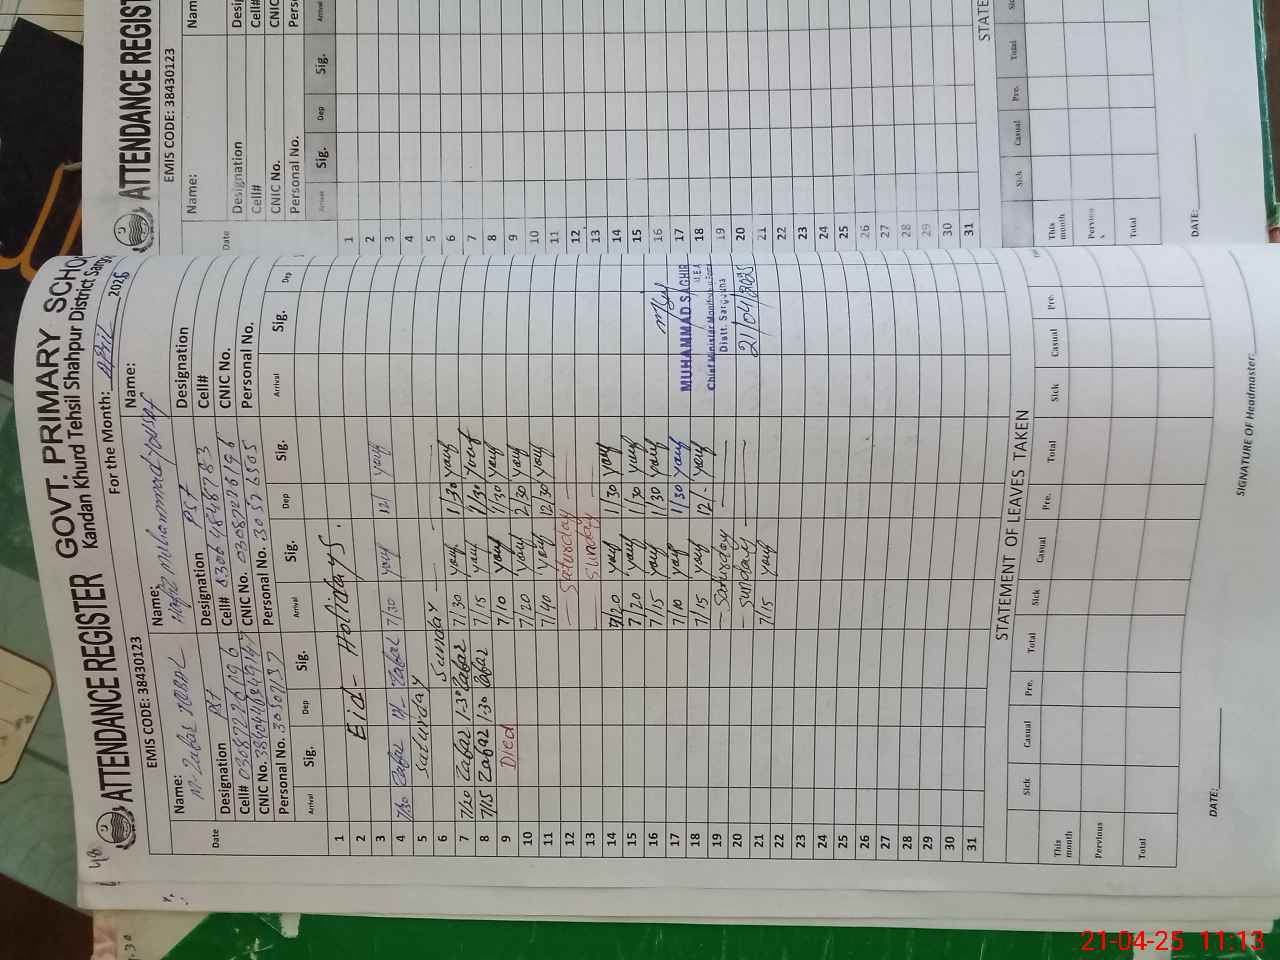 ATTENDANCE REGISTER GOVT. PRIMARY SCHO
Kandan Khurd Tehsil Shahpur District Sarg
EMIS CODE: 38430123
For the Month: April 2025
Name: M. Zafar Iqbal
Name: Hafiz Muhammad Yousaf
Name:
Designation PST
Designation PST
Designation
Cell#
Cell#
Cell#
CNIC No.
CNIC No.
CNIC No.
Personal No.
Personal No. 30526505
Personal No.
Date Arrival Sig. Dep Sig. Arrival Sig. Dep Sig. Arrival Sig. Dep
1 Eid - Holidays.
2
3
4 7/30 Zafar 12/- Zafar 7/30 youf 12/ youf
5 Saturday
6 Sunday
7 7/20 Zafar 1-30 Zafar 7/30 youf 1/30 youf
8 7/15 Zafar 1.30 Zafar 7/15 youf 1/30 youf
9 Died 7/10 youf 1/30 youf
10 7/20 youf 2/30 youf
11 7/40 youf 12/30 youf
12 Saturday
13 Sunday
14 7/20 youf 1/30 youf
15 7/20 youf 1/30 youf
16 7/15 youf 1/30 youf
17 7/10 youf 1/30 youf
18 7/15 youf 12/- youf
19 Saturday
20 Sunday
21 7/15 youf
22
23
24
25
26
27
28
29
30
31
MUHAMMAD SAGHIR
Chief Minister Monitoring
Distt. Sargodha
21/04/2025
STATEMENT OF LEAVES TAKEN
Sick Casual Pre. Total Sick Casual Pre. Total Sick Casual Pre.
This month
Pervious
Total
DATE:
SIGNATURE OF Headmaster:
ATTENDANCE REGIST
EMIS CODE: 38430123
Name:
Nam
Designation
Desig
Cell#
Cell#
CNIC No.
CNIC
Personal No.
Pers
Date Arrival Sig. Dep Sig. Arrival
1
2
3
4
5
6
7
8
9
10
11
12
13
14
15
16
17
18
19
20
21
22
23
24
25
26
27
28
29
30
31
STATE
Sick Casual Pre. Total
This month
Pervious
Total
DATE:
21-04-25 11:13